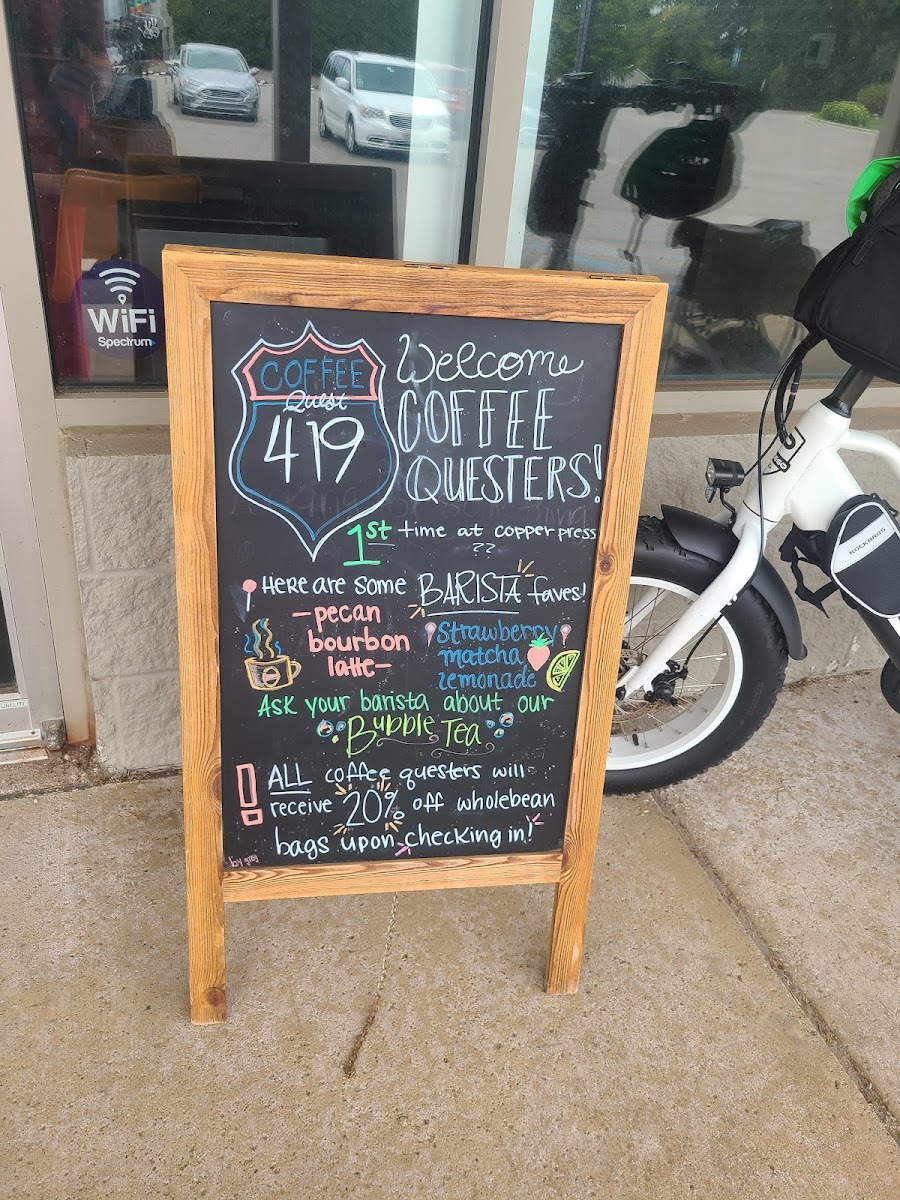 WiFi
Spectrum
COFFEE
Quest
419
Welcome
COFFEE
QUESTERS!
1st time at copper press
??
Here are some BARISTA faves!
-pecan
bourbon
latte-
Strawberry
matcha
lemonade
Ask your barista about our
Bubble Tea
! ALL coffee questers will
receive 20% off wholebean
bags upon checking in!
ROCKBROS